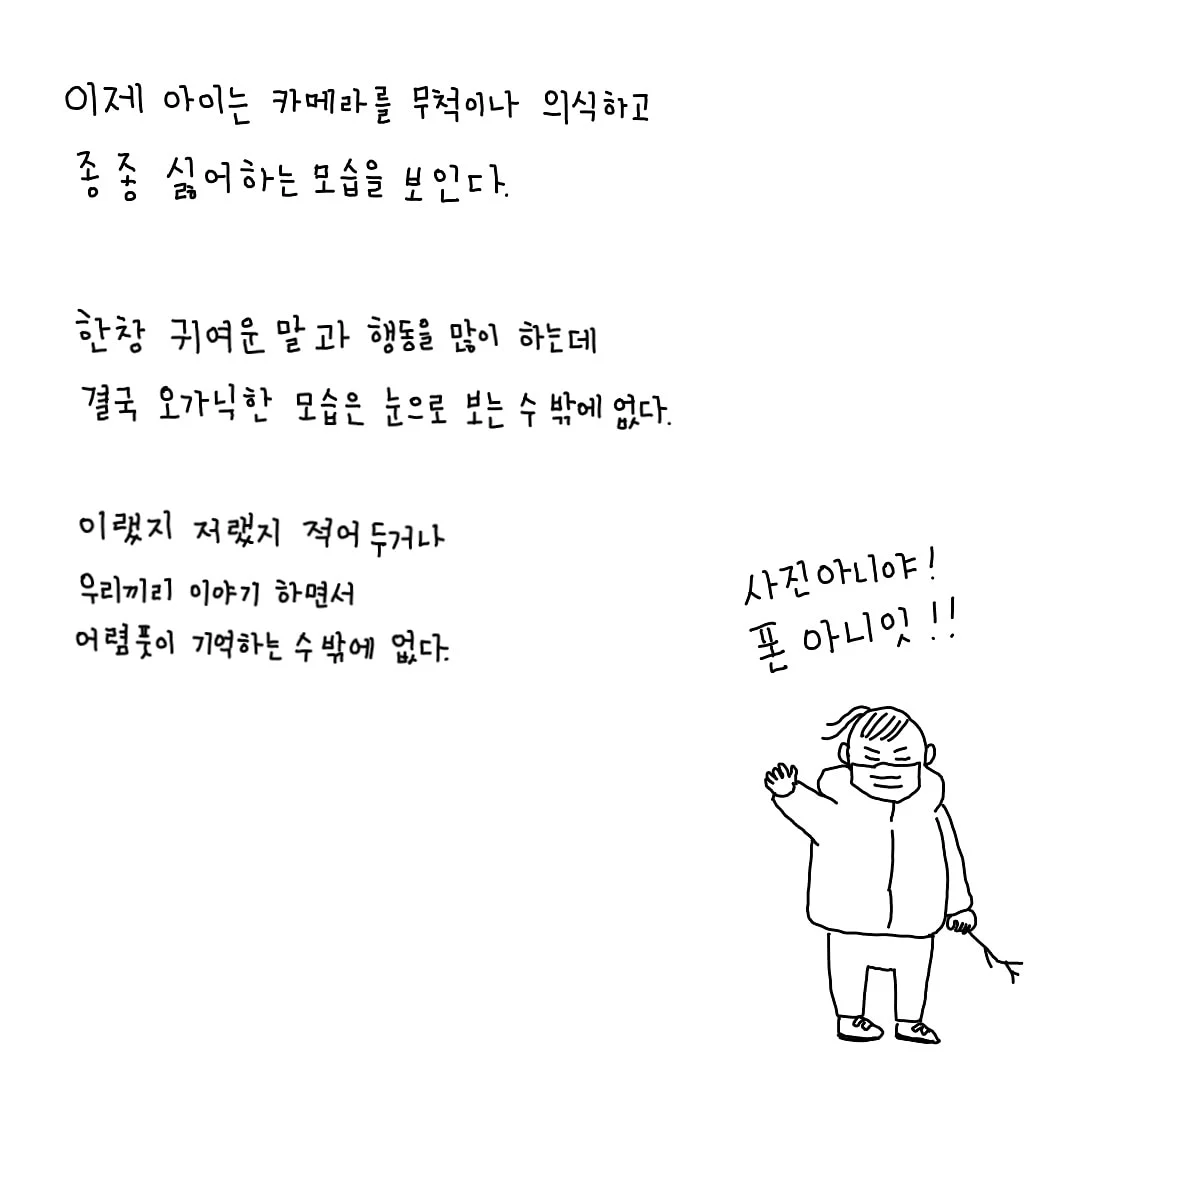 이제 아이는 카메라를 무척이나 의식하고
종종 싫어하는 모습을 보인다.
한창 귀여운 말과 행동을 많이 하는데
결국 오가닉한 모습은 눈으로 보는 수 밖에 없다.
이랬지 저랬지 적어두거나
우리끼리 이야기 하면서
어렴풋이 기억하는 수 밖에 없다.
사진아니야!
폰 아니잇!!